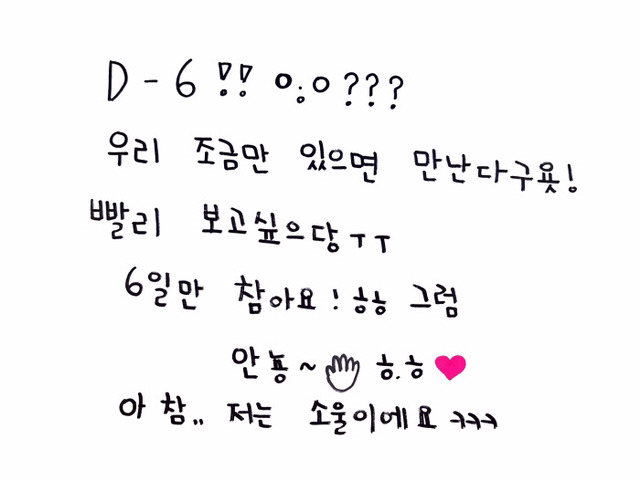 D-6 !! ㅇ.ㅇ ???
우리 조금만 있으면 만난다구욧!
빨리 보고싶으당 ㅜㅜ
6일만 참아요! ㅎㅎ 그럼
안뇽~ ㅎ.ㅎ ♥
아 참.. 저는 소울이에요 ㅋㅋㅋ